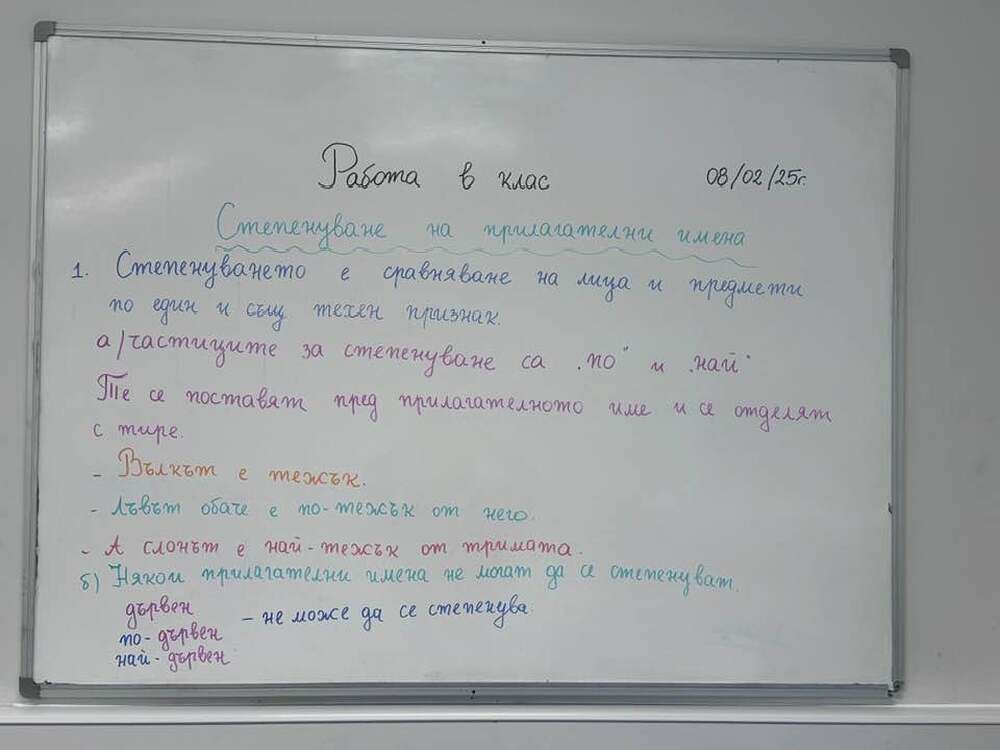 Работа в клас 08/02/25г.
Степенуване на прилагателни имена
1. Степенуването е сравняване на лица и предмети
по един и същ техен признак.
а/частиците за степенуване са „по" и „най"
Те се поставят пред прилагателното име и се отделят
с тире.
- Вълкът е тежък.
- Лъвът обаче е по-тежък от него.
- А слонът е най-тежък от тримата.
б) Някои прилагателни имена не могат да се степенуват.
дървен
по-дървен - не може да се степенува
най-дървен